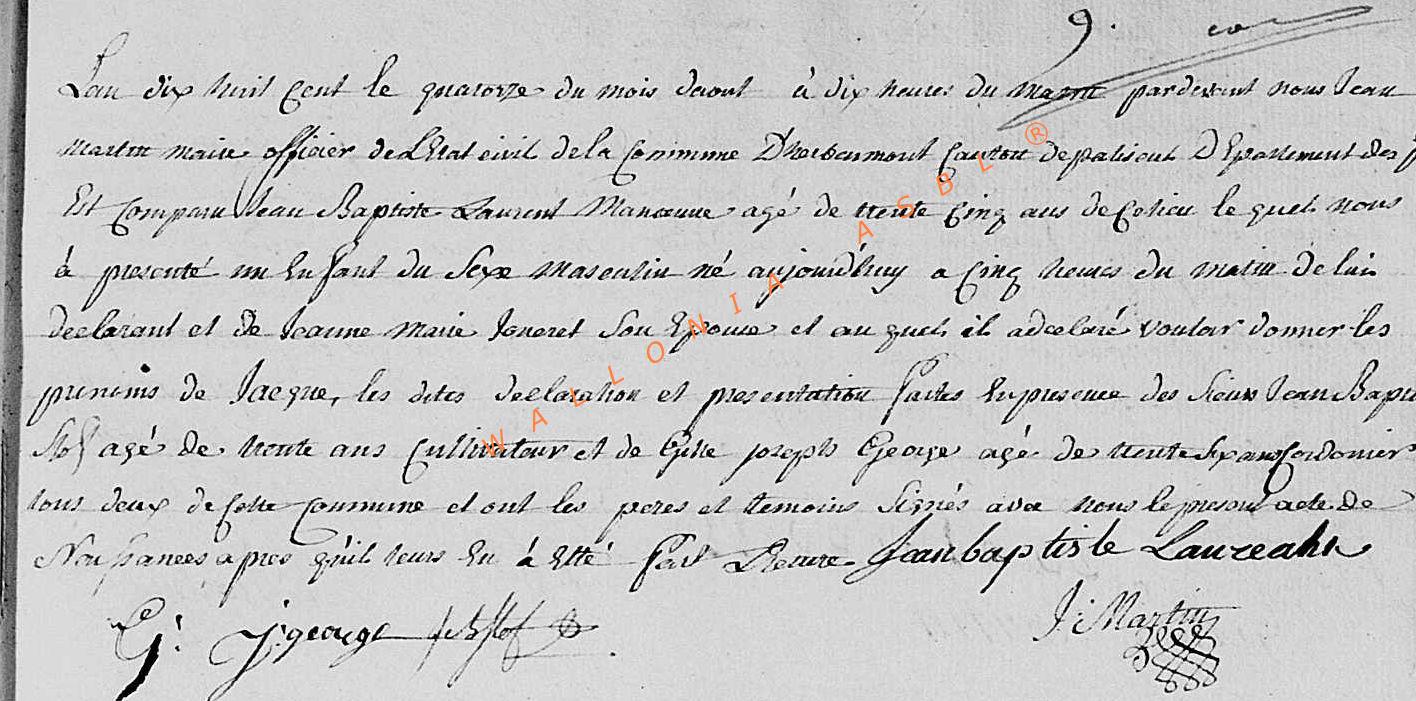 9.
Lan dix huit Cent le quatorze du mois daout à dix heures du matin pardevant nous Jean
Martin maire officier de LEtat civil de la Commune Dherbeumont Canton de paliseul DEpartement des
Est Comparu Jean Baptiste Laurent Manœuvre agé de trente Cinq ans de Celieu le quel nous
à presenté un Enfant du Sexe Masculin né aujourd'huy a Cinq heures du matin de lui
declarant et de Jeanne Marie Igneret Son Epouse et au quel il adeclaré vouloir donner les
prenoms de Jacque, les dites declaration et presentation faites En presence des Sieurs Jean Bapti
agé de trente ans Cultivateur et de joseph George agé de trente Six ans Cordonier
tous deux de Cette Commune et ont les peres et temoins Signés avec nous le present acte de
Naissances apres quil leurs En à Etté fait Lecture Jean baptiste
G: J: george J: Martin
WALLONIA ASBL ®